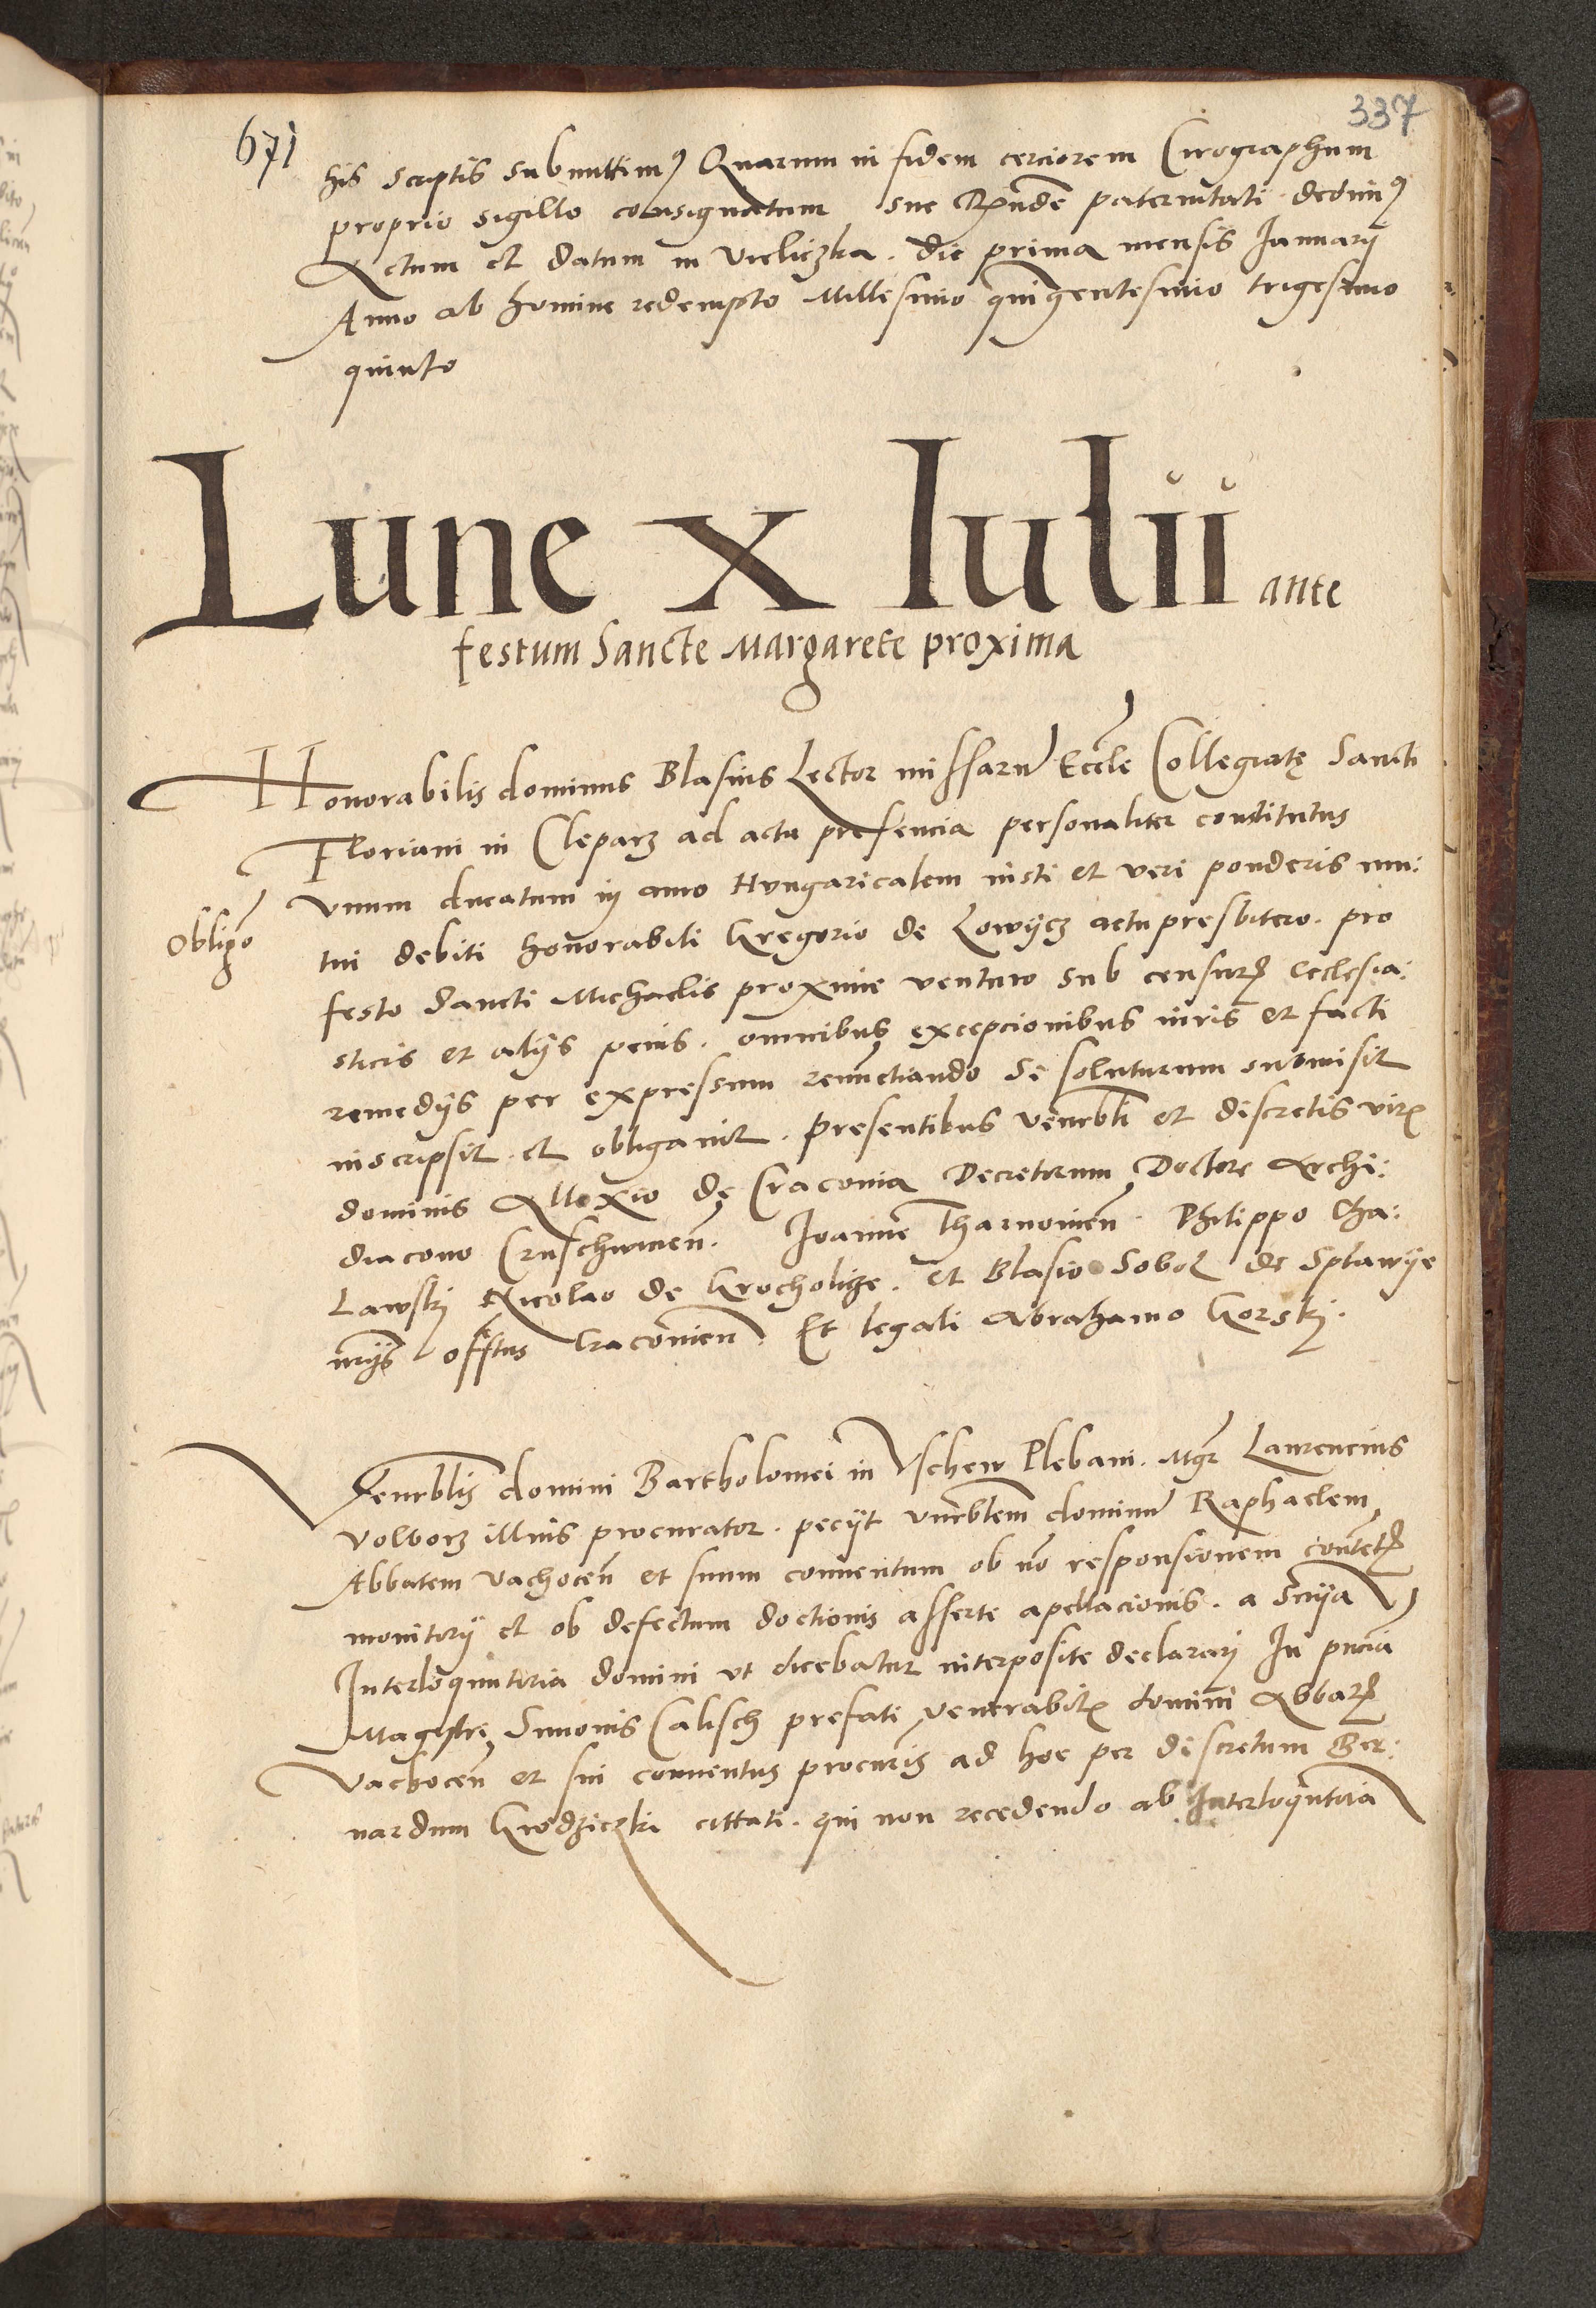 337
671
his scriptis submittimus Quarum in fidem cerciorem Cirographum
proprio sigillo consignatum sue Rnde paternitati dedimus
Actum et datum in Vieliczka. die prima mensis Januarij
Anno ab homine redempto Millesimo quingentesimo trigesimo
quinto
Lune X Iulii ante
festum Sancte Margarete proxima
Honorabilis dominus Blasius Lector missarum Eccle Collegiatę Sancti
Floriani in Cleparz ad acta presencia personaliter constitutus
vnum ducatum in auro Hungaricalem iusti et veri ponderis mu:
Obligo
tui debiti honorabili Gregorio de Lowycz actu presbitero. pro
festo Sancti Michaelis proxime venturo sub censuris ecclesia:
sticis et alijs penis. omnibus excepcionibus iuris et facti
remedijs per expressum renunctiando Se soluturum submisit
inscripsit et obligauit. presentibus venerbli et discretis viris
dominis Allexio de Craconia Decretorum Doctore Archi:
diacono Cruschwicen. Joanne Tharnowien. Philippo Cha:
Lawskj Nicolao de Krocholicze. et Blasio Sobol de Splawye
nrijs offtus Craconien. Et legali Abrahamo Gorskj.
Venerblis domini Bartholomei in Vschew Plebani. Mgr Laurencius
Volborz illius procurator. pecijt vnrblem dominum Raphaelem
Abbatem Vachocen et suum conuentum ob no responsionem contentis
monitorij et ob defectum doctionis asserte apellacionis. a Snija
Interloquutoria domini vt dicebatur interposite declararj In pncia
Magistri Simonis Calisch prefati venerabilis domini Abbatis
Vachocen et sui conuentus procuris ad hoc per discretum Ber:
nardum Grodziczki cittati. qui non recedendo ab Interloqutoria